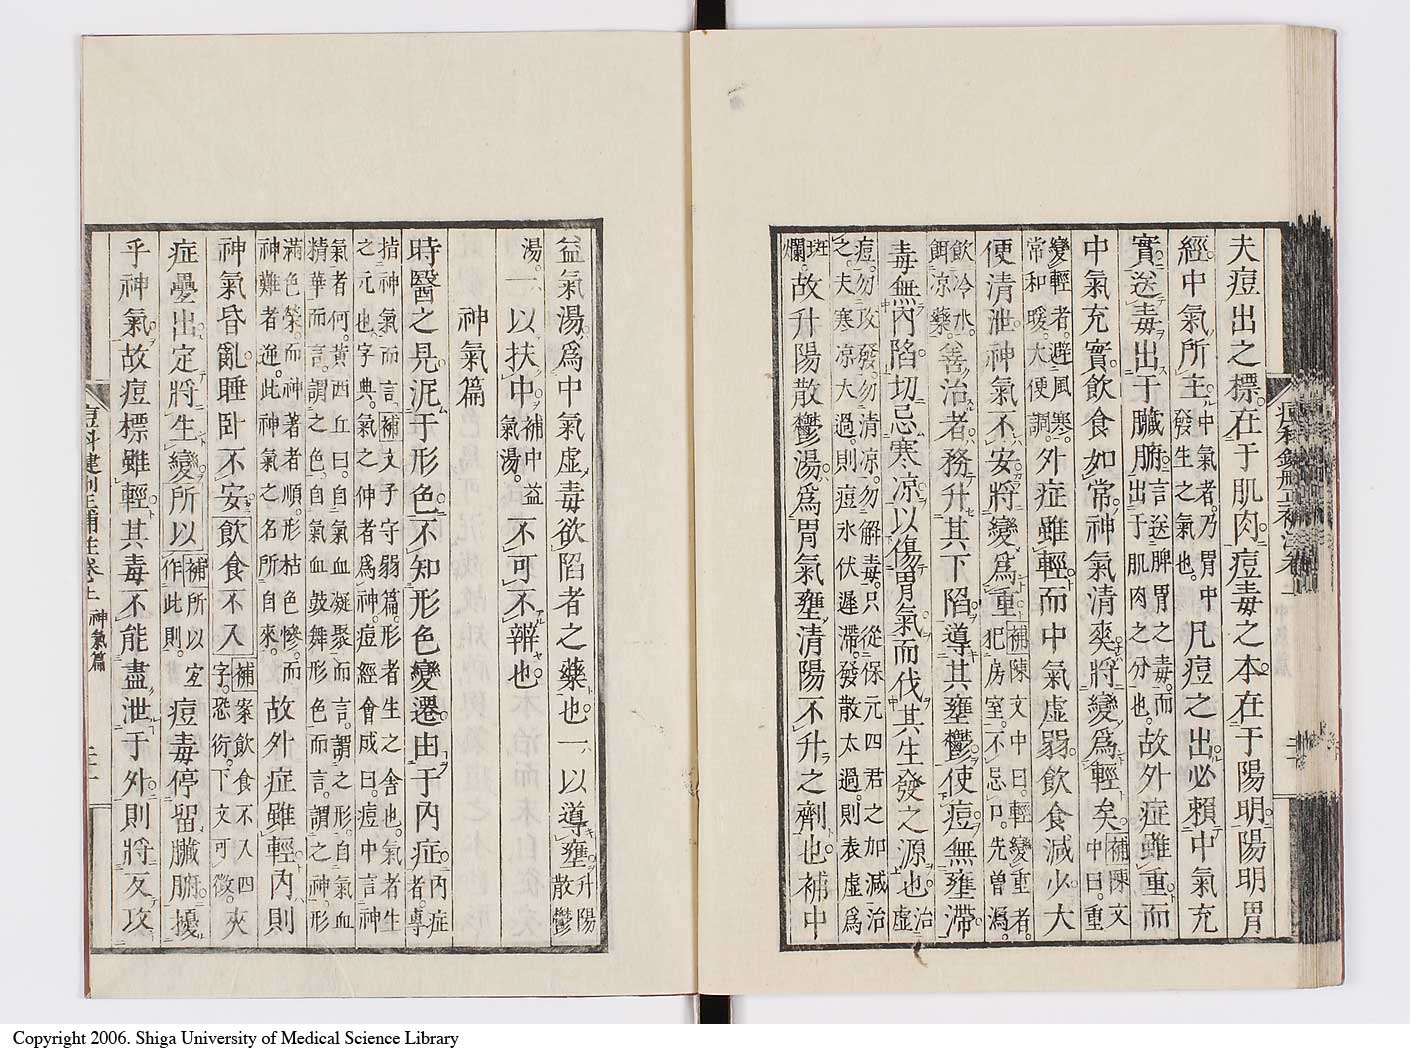 夫痘出之標在于肌肉。痘毒之本在于陽明。陽明胃
經。中氣所主。中氣者。乃胃中發生之氣也。凡痘之出。必賴中氣充
實。送毒出于臟腑。言送脾胃之毒。而出于肌肉之分也。故外症雖重。而
中氣充實。飲食如常。神氣清爽。將變爲輕矣。補陳文中曰。重
變輕者。避風寒。常和暖。大便調。外症雖輕。而中氣虛弱。飲食減少。大
便清泄。神氣不安。將變爲重。補陳文中曰。輕變重者。犯房室。不忌口。先曾瀉。
飲冷水。餌凉藥。善治者。務升其下陷。導其壅鬱。使痘無壅滯。
毒無內陷。切忌寒凉。以傷胃氣。而伐其生發之源也。治虛
痘。勿攻發。勿清凉。勿解毒。只從保元四君之加減治之。夫寒凉大過。則痘水伏遲滯。發散太過。則表虛爲
斑爛。故升陽散鬱湯。爲胃氣壅。清陽不升之劑也。補中
益氣湯。爲中氣虛。毒欲陷者之藥也。一以導壅升陽散鬱
湯。一以扶中補中益氣湯。不可不辨也
神氣篇
時醫之見。泥于形色。不知形色變遷。由于內症。內症者。專
指神氣而言。補文子守弱篇。形者生之舍也。氣者生之元也。字典。氣之伸者爲神。痘經會成曰。痘中言神
氣者何。黃西丘曰。自氣血凝聚而言。謂之形。自氣血精華而言。謂之色。自氣血鼓舞形色而言。謂之神。形
滿色榮。而神著者順。形枯色慘。而神難者逆。此神氣之名所自來。故外症雖輕。內則
神氣昏亂。睡卧不安。飲食不入。補案飲食不入四字。恐衍。下文可徵。夾
症疊出。定將生變。所以補所以宜作此則。痘毒停留臟腑。擾
乎神氣。故痘標雖輕。其毒不能盡泄于外。則將反攻
痘科鍵刪正補註卷上 神氣篇